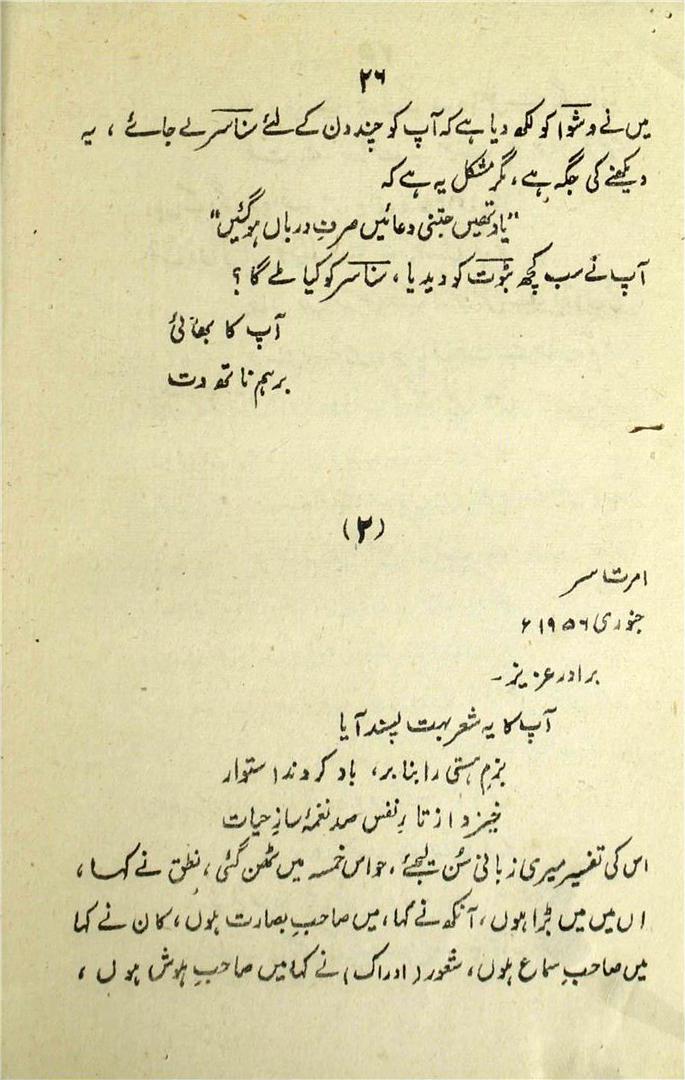 ۲۶
میں نے وشوا کو لکھ دیا ہے کہ آپ کو چند دن کے لئے سناسر لے جائے ، یہ
دیکھنے کی جگہ ہے ، مگر مشکل یہ ہے کہ
"یاد تھیں جتنی دعائیں صرفِ درباں ہوگئیں"
آپ نے سب کچھ بٹوت کو دیدیا ، سناسر کو کیا ملے گا ؟
آپ کا بھائی
برہم ناتھ دت
(۲)
امرتسر
جنوری ۱۹۵۶ء
برادرِ عزیز ۔
آپ کا یہ شعر بہت پسند آیا
بزمِ ہستی را بنا بر، باد کردند استوار
خیزد از تارِ نفس صد نغمۂ سازِ حیات
اس کی تفسیر میری زبانی سُن لیجئے ، حواس خمسہ میں ٹھن گئی ، نطق نے کہا ،
اں میں میں بڑا ہوں ، آنکھ نے کہا ، میں صاحبِ بصارت ہوں ، کان نے کہا
میں صاحبِ سماع ہوں ، شعور (ادراک) نے کہا میں صاحبِ ہوش ہوں ،